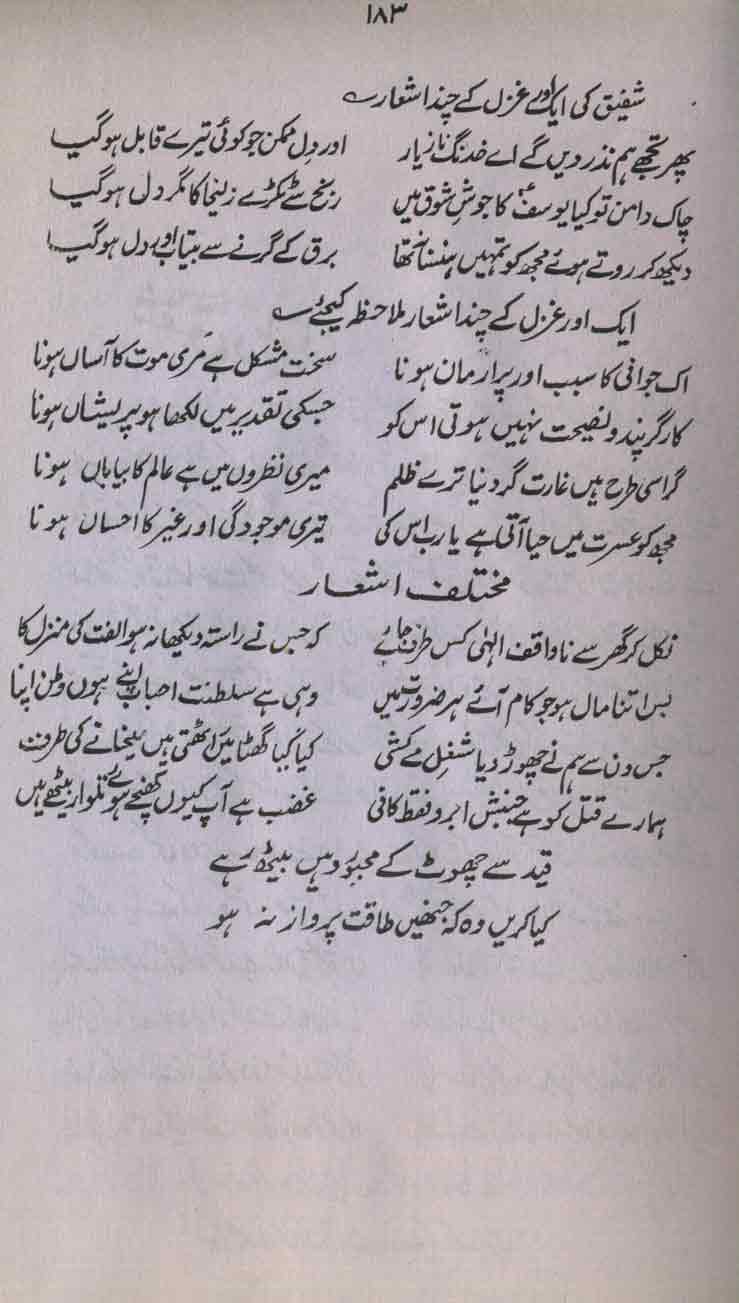 ۱۸۳
شفیق کی ایک اور غزل کے چند اشعار ؎
پھر تجھے ہم نذر دیں گے اے خدنگ ناز یار اور دِل ممکن جو کوئی تیرے قابل ہوگیا
چاک دامن تو کیا یوسفؑ کا جوشِ شوق میں رنج سے ٹکڑے زلیخا کا مگر دل ہوگیا
دیکھ کر روتے ہوئے مجھ کو تمہیں ہنسنا نہ تھا برق کے گرنے سے بیتاب اور دل ہوگیا
ایک اور غزل کے چند اشعار ملاحظہ کیجئے ؎
اک جوانی کا سبب اور پر ارمان ہونا سخت مشکل ہے مری موت کا آساں ہونا
کارگر پند و نصیحت نہیں ہوتی اس کو جسکی تقدیر میں لکھا ہو پریشاں ہونا
گر اسی طرح ہیں غارت گر دنیا ترے ظلم میری نظروں میں ہے عالم کا بیاباں ہونا
مجھ کو عسرت میں حیا آتی ہے یارب اس کی تیری موجودگی اور غیر کا احساں ہونا
مختلف اشعار
نکل کر گھر سے ناواقف الہٰی کس طرف جائے کہ جس نے راستہ دیکھا نہ ہو الفت کی منزل کا
بس اتنا مال ہو جو کام آئے ہر ضرورت میں وہی ہے سلطنت احباب اپنے ہوں وطن اپنا
جس دن سے ہم نے چھوڑ دیا شغلِ مے کشی کیا کیا گھٹائیں اٹھتی ہیں میخانے کی طرف
ہمارے قتل کو ہے جنبش ابرو فقط کافی غضب ہے آپ کیوں کھنچے ہوئے تلوار بیٹھے ہیں
قید سے چھوٹ کے مجبور وہیں بیٹھ رہے
کیا کریں وہ کہ جنھیں طاقت پرواز نہ ہو